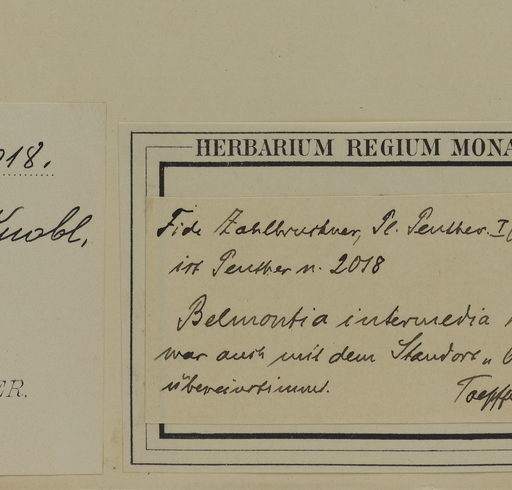 018.
Knobl.
ER.
HERBARIUM REGIUM MONA
Fide Zahlbruckner, Pl. Penther. I
ist Penther n. 2018
Belmontia intermedia
was auch mit dem Standort „
übereinstimmt.
Toepff